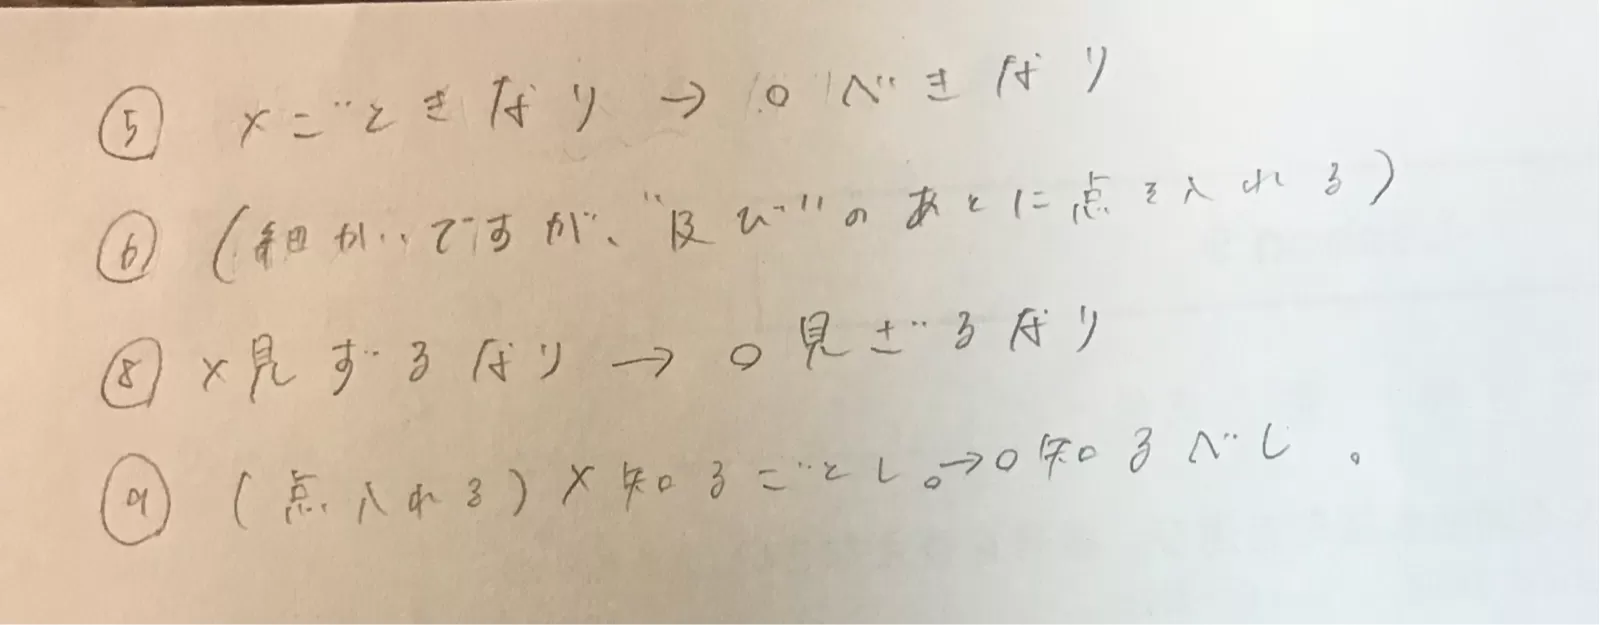 ⑤ ×ごときなり → ○べきなり
⑥ (細かいですが、"及び"のあとに点を入れる)
⑧ ×見ずるなり → ○見ざるなり
⑨ (点入れる) ×知るごとし。→○知るべし。